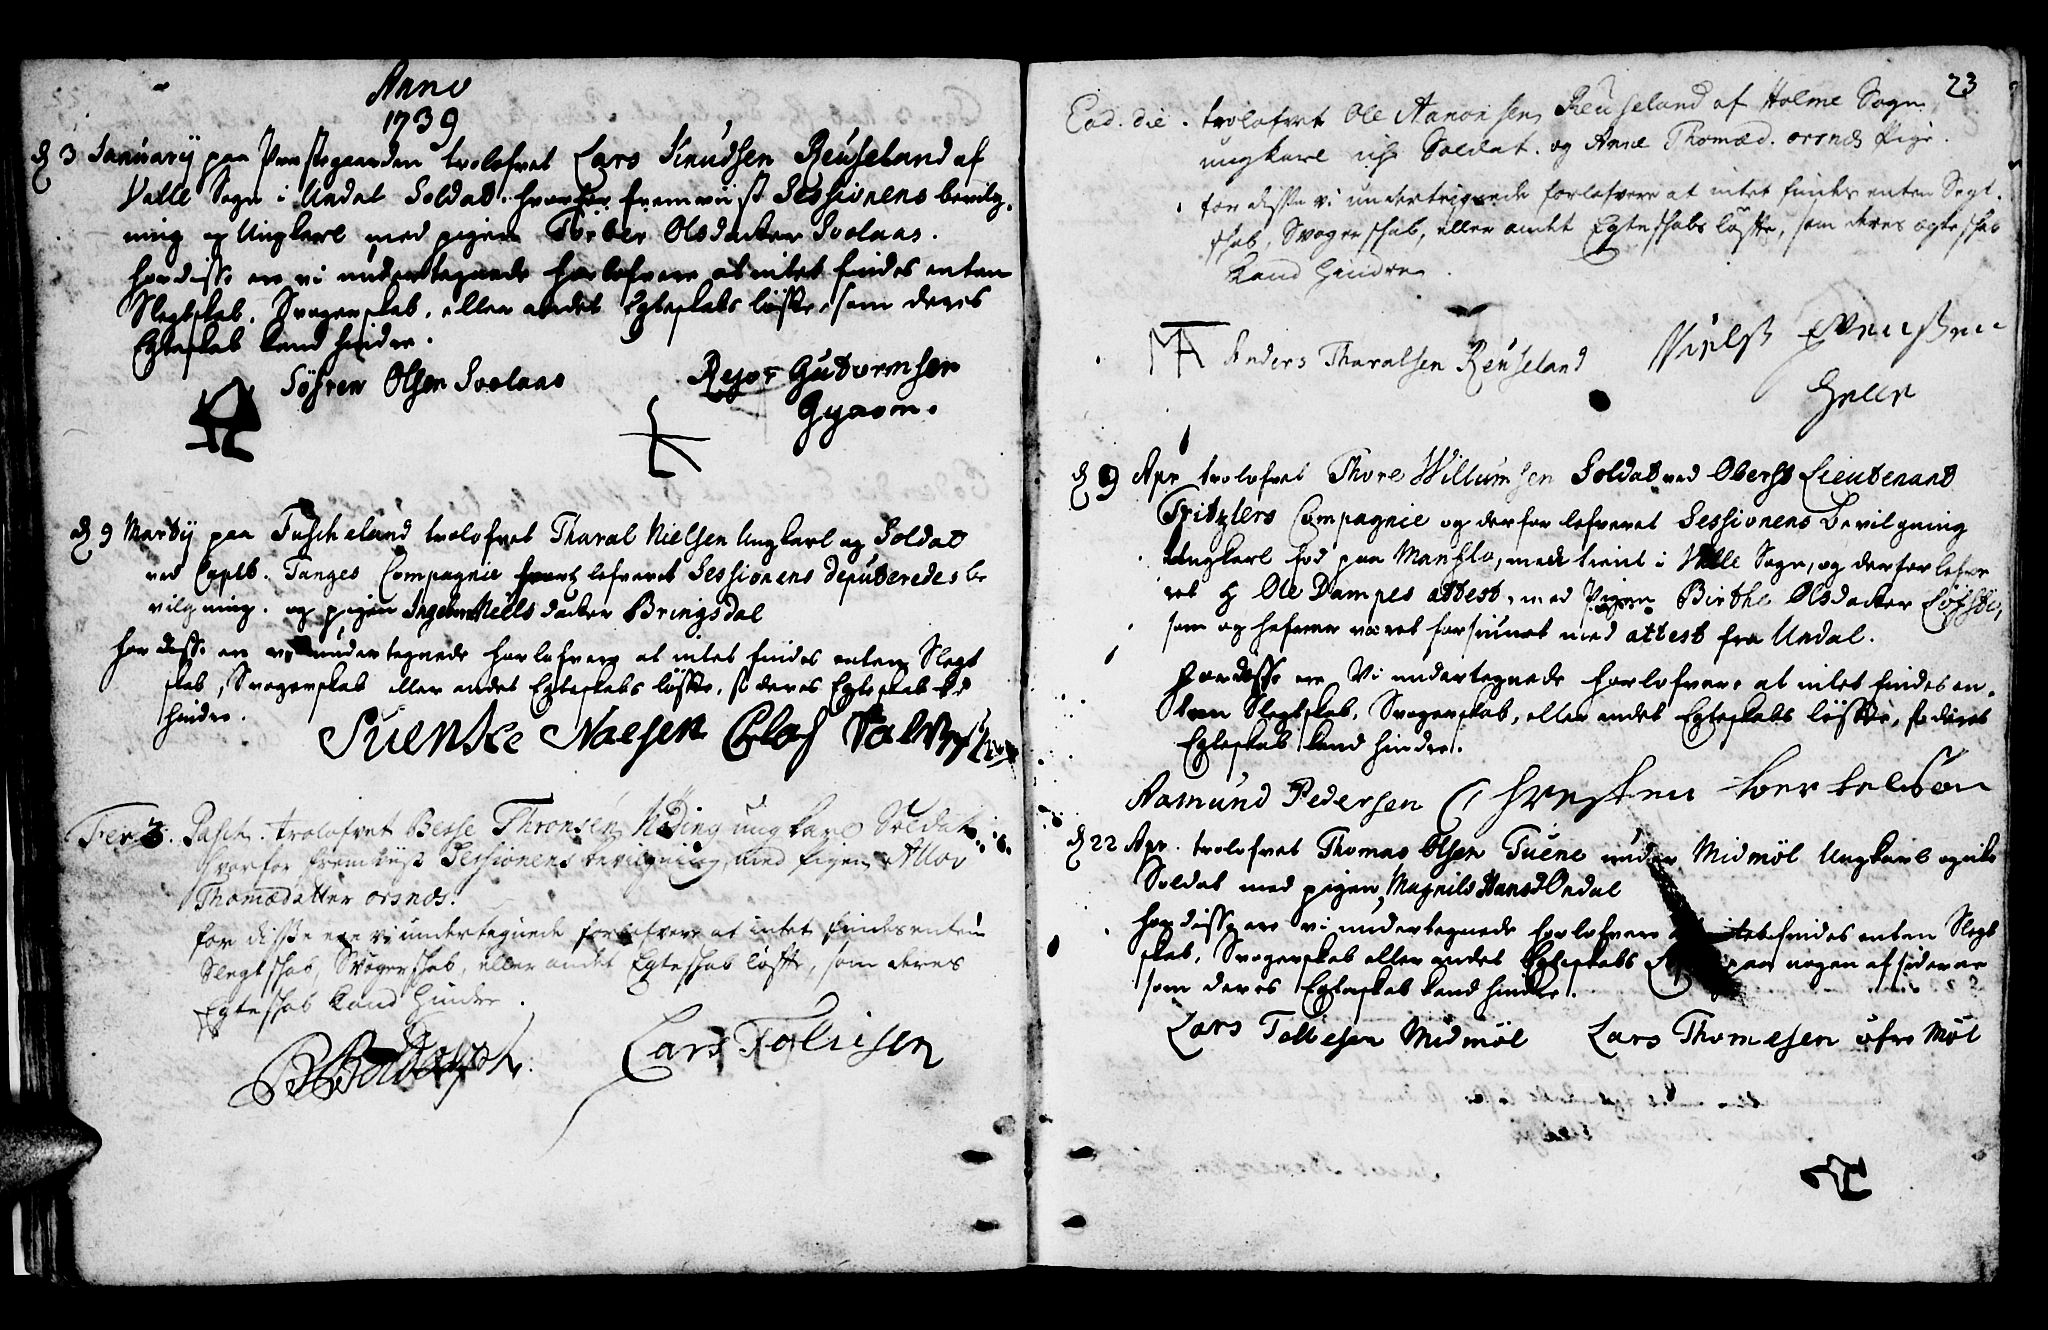 Anno
1739
d 3 January paa Præstegaarden trolofvet Lars Knudsen Reuseland af
Valle Sogn i Undal Soldat. hvorfor fremviist Sessionens bevilg,
ning og Ungkarl med pigen Torber Olsdatter Svolaas.
for disse ere vi undertegnede forlofvere at intet findes enten
Slegtskab, Svogerskab, eller andet Egteskabs løfte, som deres
Egteskab kand hindre.
Søfren Olsen Svolaas
Rejer Gutormsen
d 9 Marty paa Tuscheland trolofvet Tharal Nielsen Ungkarl og Soldat
ved Capt. Tanges Compagnie lefveret Sessionens deputeredes be
vilgning. og pigen Niels datter Bringsdal
for disse ere vi undertegnede forlofvere at intet findes enten Slegt
skab, Svogerskab eller andet Egteskabs løfte, s deres Egteskab kd
hindre.
Suenke Naesen Olaf
Fer. 3. Pasch. trolofvet Besse Thronsen Ungkarl Soldat
hvorfor fremviist Sessionens bevilgning, med Pigen
Thomædatter orsnes.
for disse ere vi undertegnede forlofvere at intet findes enten
Slegtschab, Svogerschab, eller andet Egteschab løfte, som deres
Egteschab kand hindre.
Lars Tollisen
23
Ead. die. trolofvet Ole Aanonsen Reuseland af Holme Sogn
ungkarl Soldat. og Anne Thomæd. orsnes Pige.
for disse vi undertegnede forlofvere at intet findes enten Slegt
schab, Svogerschab, eller andet Egteschabs løfte, som deres egteschab
kand hindre.
Anders Tharalsen Reuseland
Niels
d 9 Apr trolofvet Thore Willumsen Soldat ved Oberst Lieutenant
Fritzlers Compagnie og derfor lefveret Sessionens bevilgning
Ungkarl fød paa Manflo, med tient i Valle Sogn, og derfor lefve
ret H Ole Dampes attest, med Pigen Birthe Olsdatter
som og hefver været forsiunet med attest fra Undal.
for disse ere Vi undertegnede forlofvere at intet findes en,
ten Slegtskab, Svogerskab, eller andet Egteskabs løfte, s deres
Egteskab kand hindre.
Aamund Pedersen Chresten
d 22 Apr. trolofvet Thomas Olsen Tuene under Midmøl Ungkarl og
Soldat med pigen Magnild Hansd Ondal
for disse ere vi undertegnede forlofvere at intet findes enten Slegt
skab, Svogerskab eller andet Egteskabs paa nogen af siderne
som deres Egteskab kand hindre.
Lars Tollesen Midmøl Lars Thomesen øfre Møl